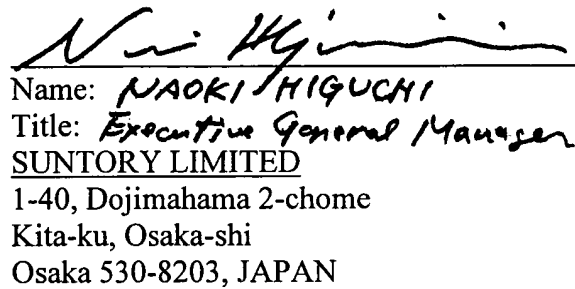 Name: NAOKI HIGUCHI
Title: Executive General Manager
SUNTORY LIMITED
1-40, Dojimahama 2-chome
Kita-ku, Osaka-shi
Osaka 530-8203, JAPAN